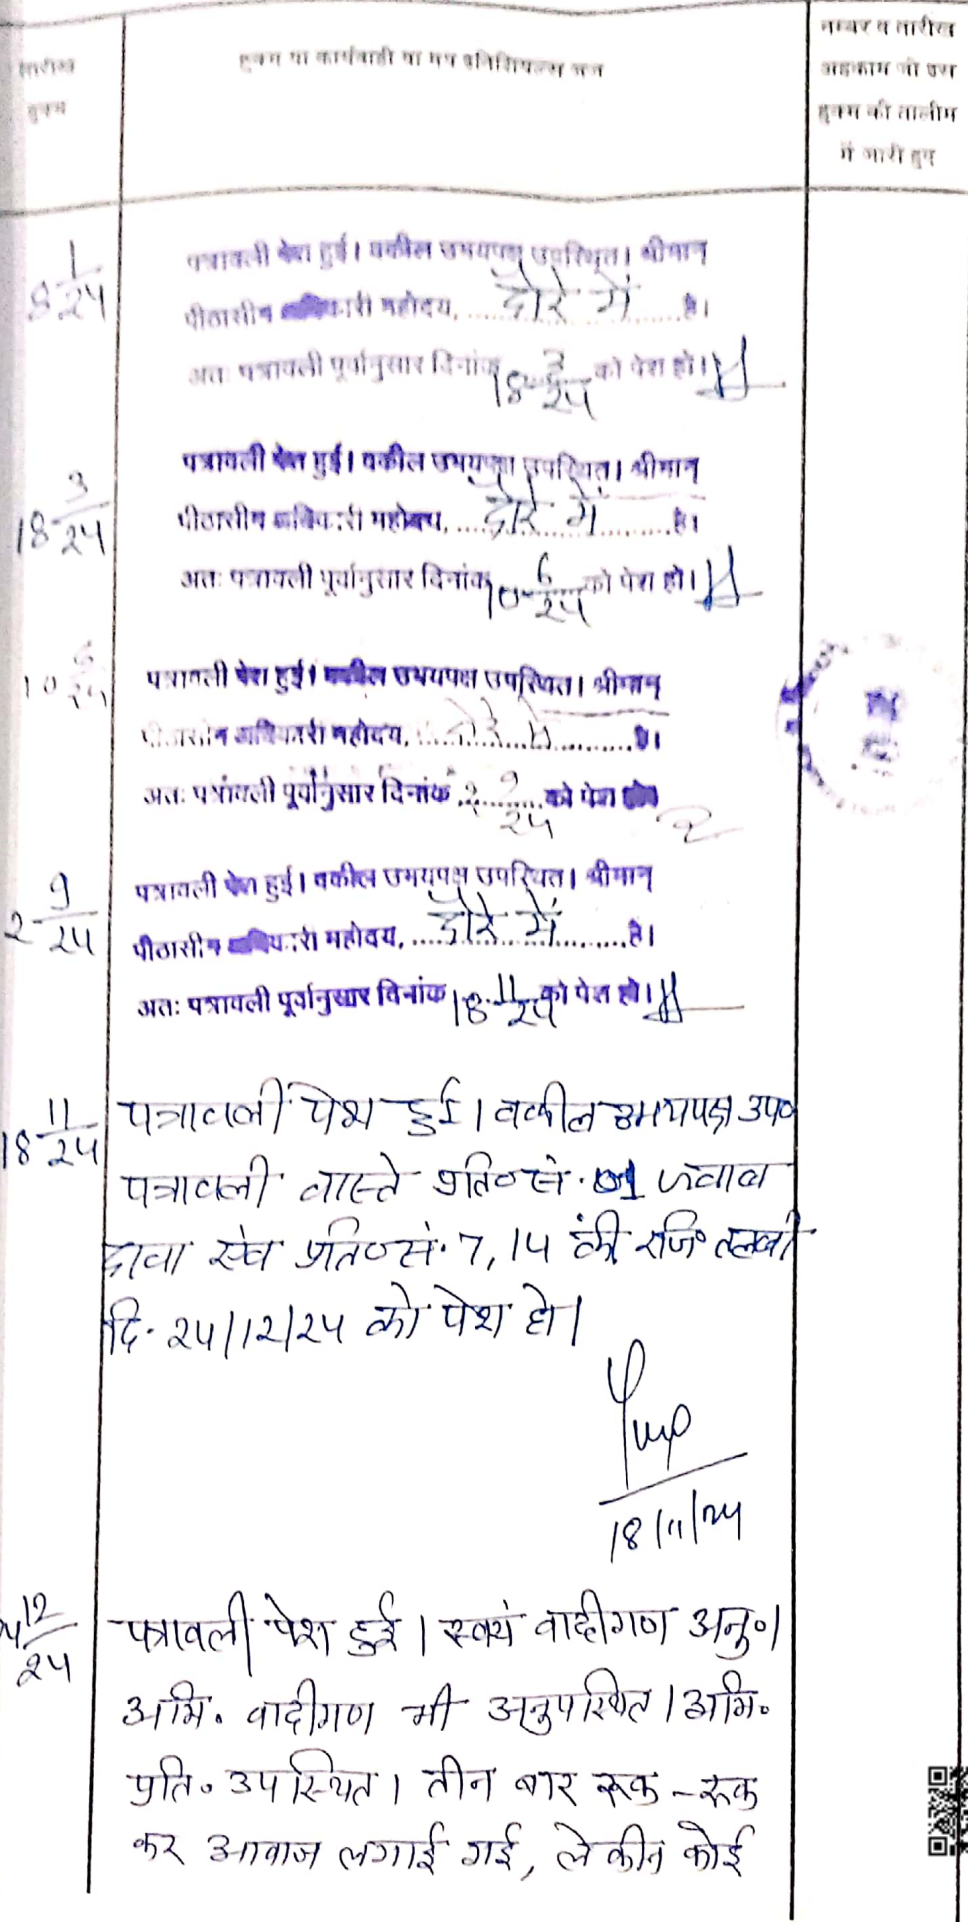 तारीख
हुक्म
हुक्म या कार्यवाही या मय इनिशियल्स जज
नम्बर व तारीख
अहकाम जो इस
हुक्म की तालीम
में जारी हुए
8 1/24
पत्रावली पेश हुई। वकील उभयपक्ष उपस्थित। श्रीमान्
पीठासीन अधिकारी महोदय, दौरे में है।
अतः पत्रावली पूर्वानुसार दिनांक 18-3/24 को पेश हो।
18 3/24
पत्रावली पेश हुई। वकील उभयपक्ष उपस्थित। श्रीमान्
पीठासीन अधिकारी महोदय, दौरे में है।
अतः पत्रावली पूर्वानुसार दिनांक 10-6/24 को पेश हो।
10 6/24
पत्रावली पेश हुई। वकील उभयपक्ष उपस्थित। श्रीमान्
पीठासीन अधिकारी महोदय, दौरे में है।
अतः पत्रावली पूर्वानुसार दिनांक 2 9/24 को पेश हो
2-9/24
पत्रावली पेश हुई। वकील उभयपक्ष उपस्थित। श्रीमान्
पीठासीन अधिकारी महोदय, दौरे में है।
अतः पत्रावली पूर्वानुसार दिनांक 18-11/24 को पेश हो।
18 11/24
पत्रावली पेश हुई। वकील उभयपक्ष उप०
पत्रावली वास्ते प्रति० सं. 1 जवाब
दावा एंव प्रति० सं. 7, 14 की रजि० तलबी
दि. 24/12/24 को पेश हो।
18/11/24
12/24
पत्रावली पेश हुई। स्वयं वादीगण अनु०।
अभि. वादीगण भी अनुपस्थित। अभि.
प्रति. उपस्थित। तीन बार रूक-रूक
कर आवाज लगाई गई, लेकीन कोई